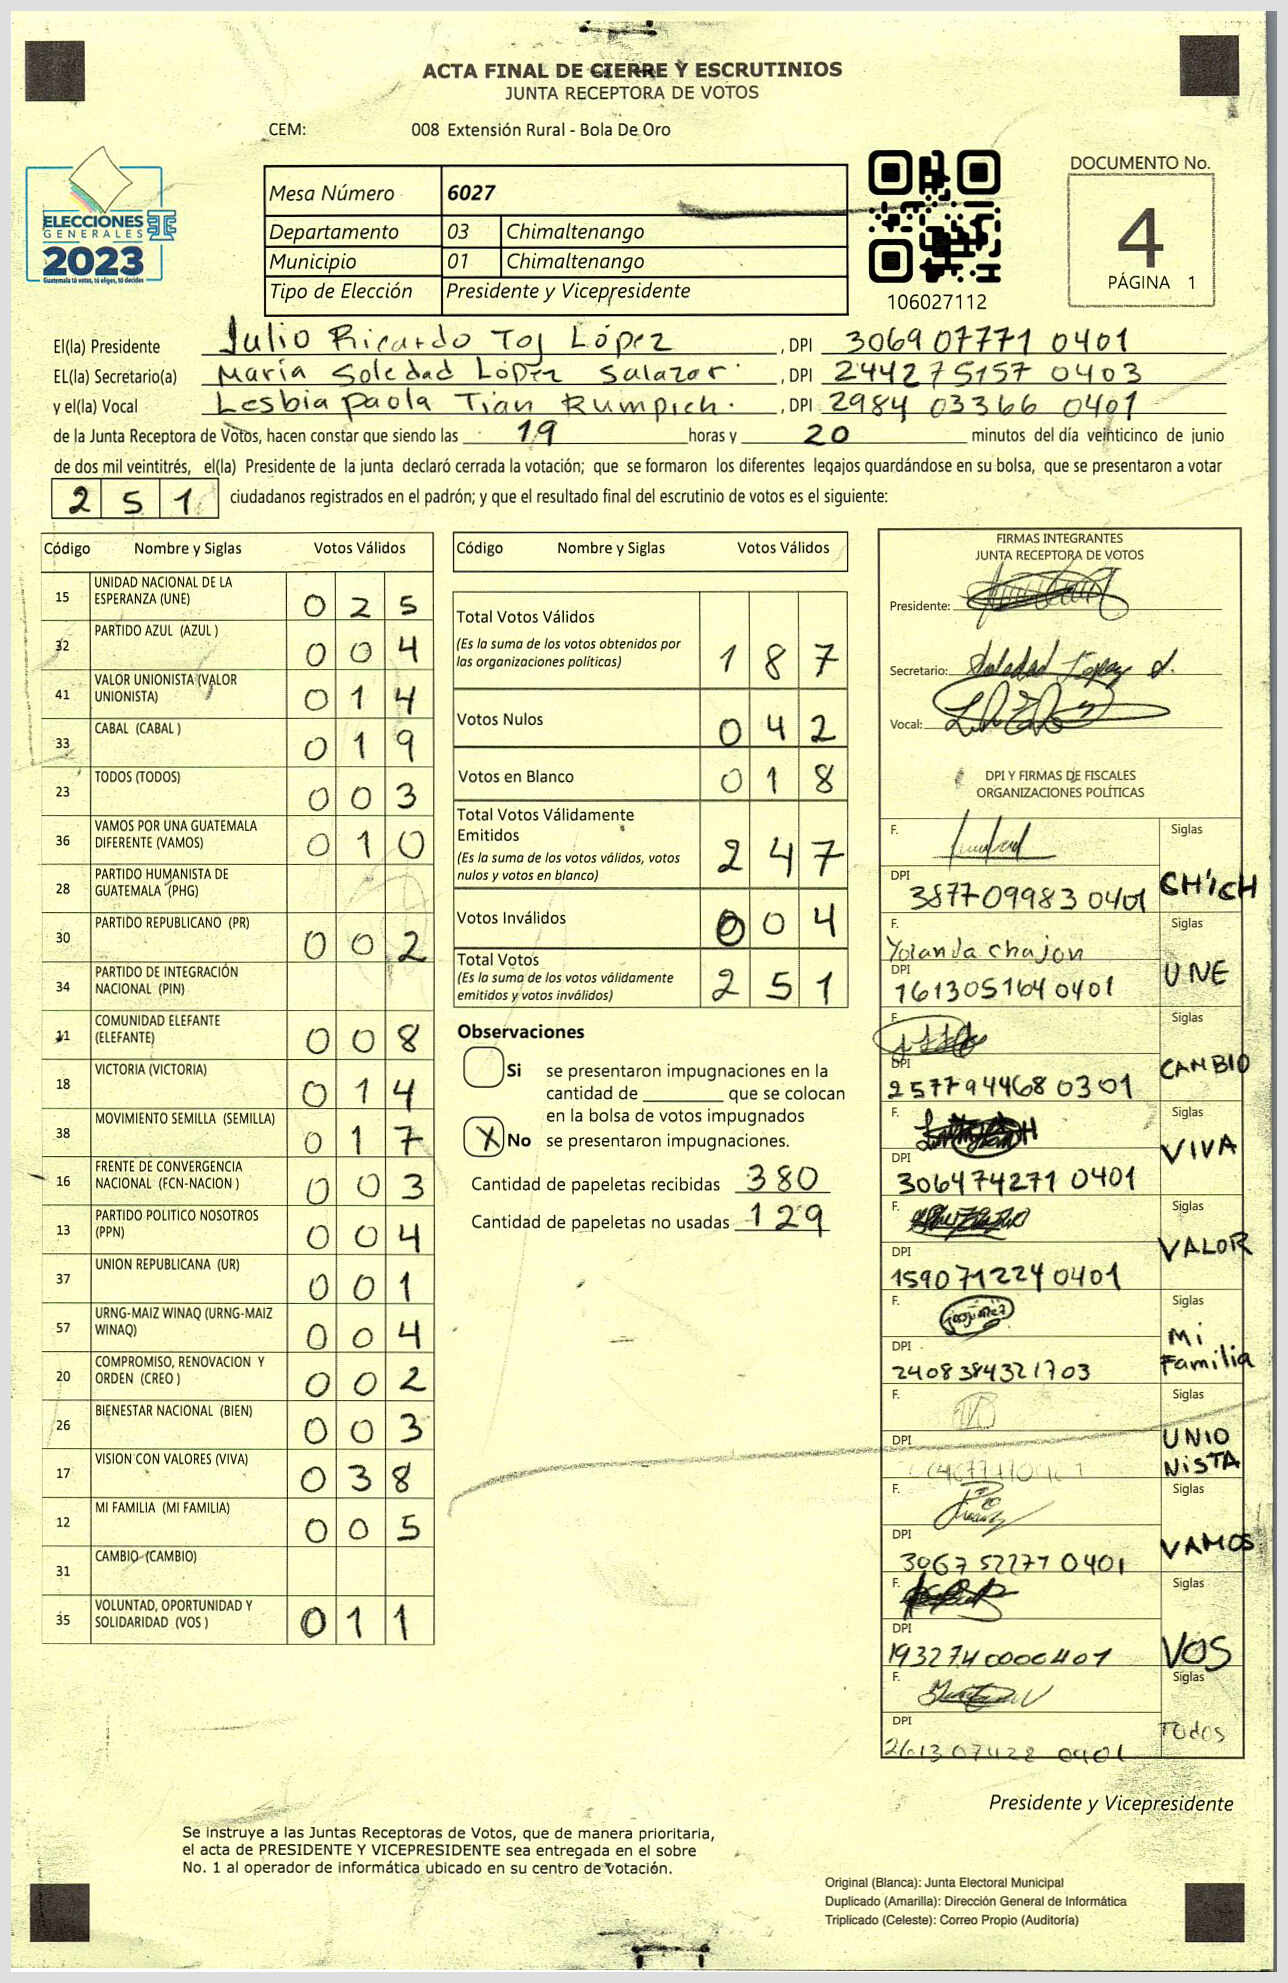 ACTA FINAL DE CIERRE Y ESCRUTINIOS
JUNTA RECEPTORA DE VOTOS
CEM: 008 Extensión Rural - Bola De Oro
ELECCIONES
GENERALES
2023
Guatemala tú votas, tú eliges, tú decides
Mesa Número 6027
Departamento 03 Chimaltenango
Municipio 01 Chimaltenango
Tipo de Elección Presidente y Vicepresidente
106027112
DOCUMENTO No.
4
PÁGINA 1
El(la) Presidente Julio Ricardo Toj López , DPI 306907771 0401
EL(la) Secretario(a) María Soledad López Salazar , DPI 244275157 0403
y el(la) Vocal Lesbia paola Tian Rumpich. , DPI 2984 03366 0401
de la Junta Receptora de Votos, hacen constar que siendo las 19 horas y 20 minutos del día veinticinco de junio
de dos mil veintitrés, el(la) Presidente de la junta declaró cerrada la votación; que se formaron los diferentes legajos guardándose en su bolsa, que se presentaron a votar
2 5 1 ciudadanos registrados en el padrón; y que el resultado final del escrutinio de votos es el siguiente:
Código Nombre y Siglas Votos Válidos
15 UNIDAD NACIONAL DE LA ESPERANZA (UNE) 0 2 5
32 PARTIDO AZUL (AZUL ) 0 0 4
41 VALOR UNIONISTA (VALOR UNIONISTA) 0 1 4
33 CABAL (CABAL ) 0 1 9
23 TODOS (TODOS) 0 0 3
36 VAMOS POR UNA GUATEMALA DIFERENTE (VAMOS) 0 1 0
28 PARTIDO HUMANISTA DE GUATEMALA (PHG)
30 PARTIDO REPUBLICANO (PR) 0 0 2
34 PARTIDO DE INTEGRACIÓN NACIONAL (PIN)
11 COMUNIDAD ELEFANTE (ELEFANTE) 0 0 8
18 VICTORIA (VICTORIA) 0 1 4
38 MOVIMIENTO SEMILLA (SEMILLA) 0 1 7
16 FRENTE DE CONVERGENCIA NACIONAL (FCN-NACION ) 0 0 3
13 PARTIDO POLITICO NOSOTROS (PPN) 0 0 4
37 UNION REPUBLICANA (UR) 0 0 1
57 URNG-MAIZ WINAQ (URNG-MAIZ WINAQ) 0 0 4
20 COMPROMISO, RENOVACION Y ORDEN (CREO ) 0 0 2
26 BIENESTAR NACIONAL (BIEN) 0 0 3
17 VISION CON VALORES (VIVA) 0 3 8
12 MI FAMILIA (MI FAMILIA) 0 0 5
31 CAMBIO (CAMBIO)
35 VOLUNTAD, OPORTUNIDAD Y SOLIDARIDAD (VOS ) 0 1 1
Código Nombre y Siglas Votos Válidos
Total Votos Válidos
(Es la suma de los votos obtenidos por las organizaciones políticas) 1 8 7
Votos Nulos 0 4 2
Votos en Blanco 0 1 8
Total Votos Válidamente Emitidos
(Es la suma de los votos válidos, votos nulos y votos en blanco) 2 4 7
Votos Inválidos 0 0 4
Total Votos
(Es la suma de los votos válidamente emitidos y votos inválidos) 2 5 1
Observaciones
Si se presentaron impugnaciones en la
cantidad de ________ que se colocan
en la bolsa de votos impugnados
X No se presentaron impugnaciones.
Cantidad de papeletas recibidas 380
Cantidad de papeletas no usadas 129
FIRMAS INTEGRANTES
JUNTA RECEPTORA DE VOTOS
Presidente:
Secretario: Soledad Lopez S.
Vocal:
DPI Y FIRMAS DE FISCALES
ORGANIZACIONES POLÍTICAS
F. Siglas
DPI 387709983 0401 CH'ICH
F. Yolanda Chajon Siglas
DPI 161305164 0401 UNE
F. Siglas
DPI 257794468 0301 CAMBIO
F. Siglas
DPI 306474271 0401 VIVA
F. Siglas
DPI 159071224 0401 VALOR
F. Siglas
DPI 2408384321703 Mi Familia
F. Siglas
DPI UNIONISTA
F. Siglas
DPI 306752271 0401 VAMOS
F. Siglas
DPI 1932740000401 VOS
F. Siglas
DPI 261307428 0401 Todos
Presidente y Vicepresidente
Se instruye a las Juntas Receptoras de Votos, que de manera prioritaria,
el acta de PRESIDENTE Y VICEPRESIDENTE sea entregada en el sobre
No. 1 al operador de informática ubicado en su centro de votación.
Original (Blanca): Junta Electoral Municipal
Duplicado (Amarilla): Dirección General de Informática
Triplicado (Celeste): Correo Propio (Auditoría)